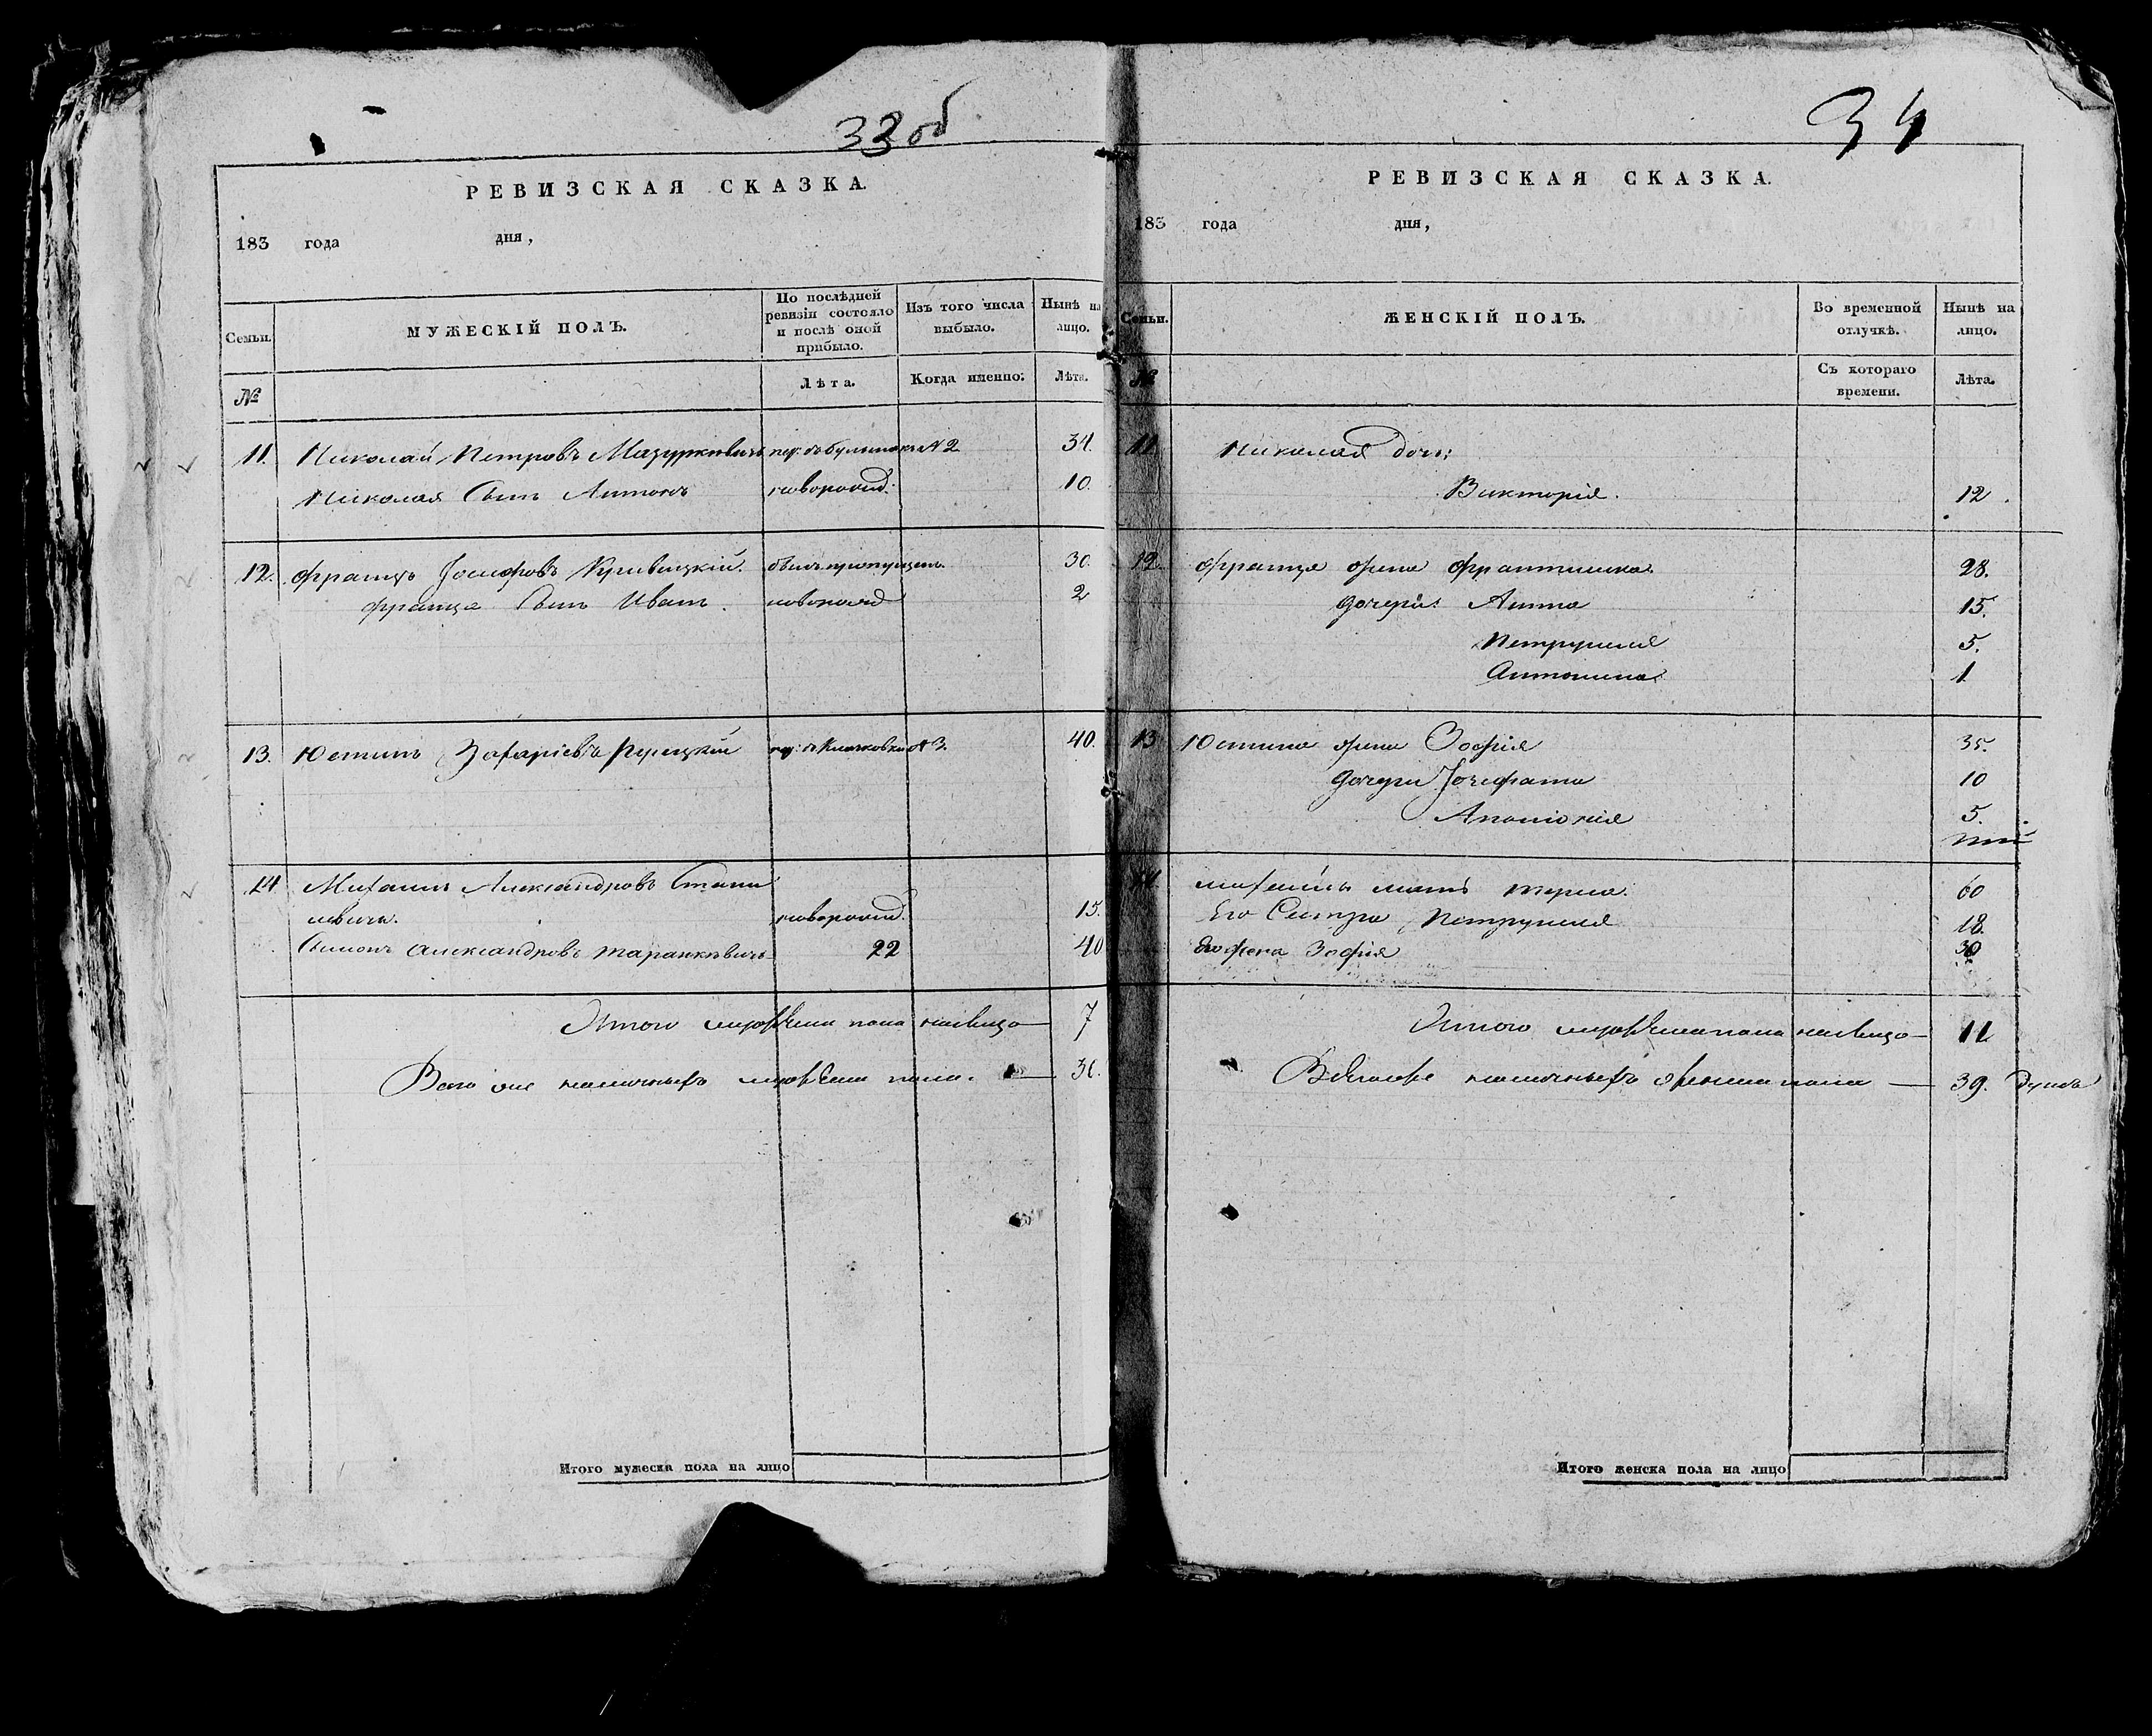 33 об
РЕВИЗСКАЯ СКАЗКА.
183 года дня,
Семьи. МУЖЕСКІЙ ПОЛЪ. По послѣдней ревизіи состояло и послѣ оной прибыло. Изъ того числа выбыло. Нынѣ на лицо.
№ Лѣта. Когда именно: Лѣта.
11. Николай Петровъ Мазуркевичь пер: № 2 34.
Николая Сынъ Антонъ новорожд: 10.
12. Францъ Іосифовъ былъ пропущенъ 30.
Франца Сынъ Иванъ. новорожд 2
13. Юстинъ Захаріевъ Рущкій пер: № 3. 40.
14 Михаилъ Александровъ Стани
левичь. новорожд. 15.
Сымонъ Александровъ Таранкевичь 22 40
Итого мужеска пола налицо 7
Всего наличныхъ мужеска пола.
Итого мужеска пола на лицо
34
РЕВИЗСКАЯ СКАЗКА.
183 года дня,
Семьи. ЖЕНСКІЙ ПОЛЪ. Во временной отлучкѣ. Нынѣ на лицо.
№ Съ котораго времени. Лѣта.
11 Николая дочь:
Викторія. 12.
12. Франца жена Франтишка 28.
дочери: Анна 15.
Петрунеля 5.
Антонина 1
13 Юстина жена Зофія 35.
дочери Іозефата 10
Аполонія 5.
14. Михайла мать 60
Его Сестра Петрунеля 18.
Его жена Зофія 30
Итого пола налицо 11
наличныхъ женска пола 39. душъ
Итого женска пола на лицо